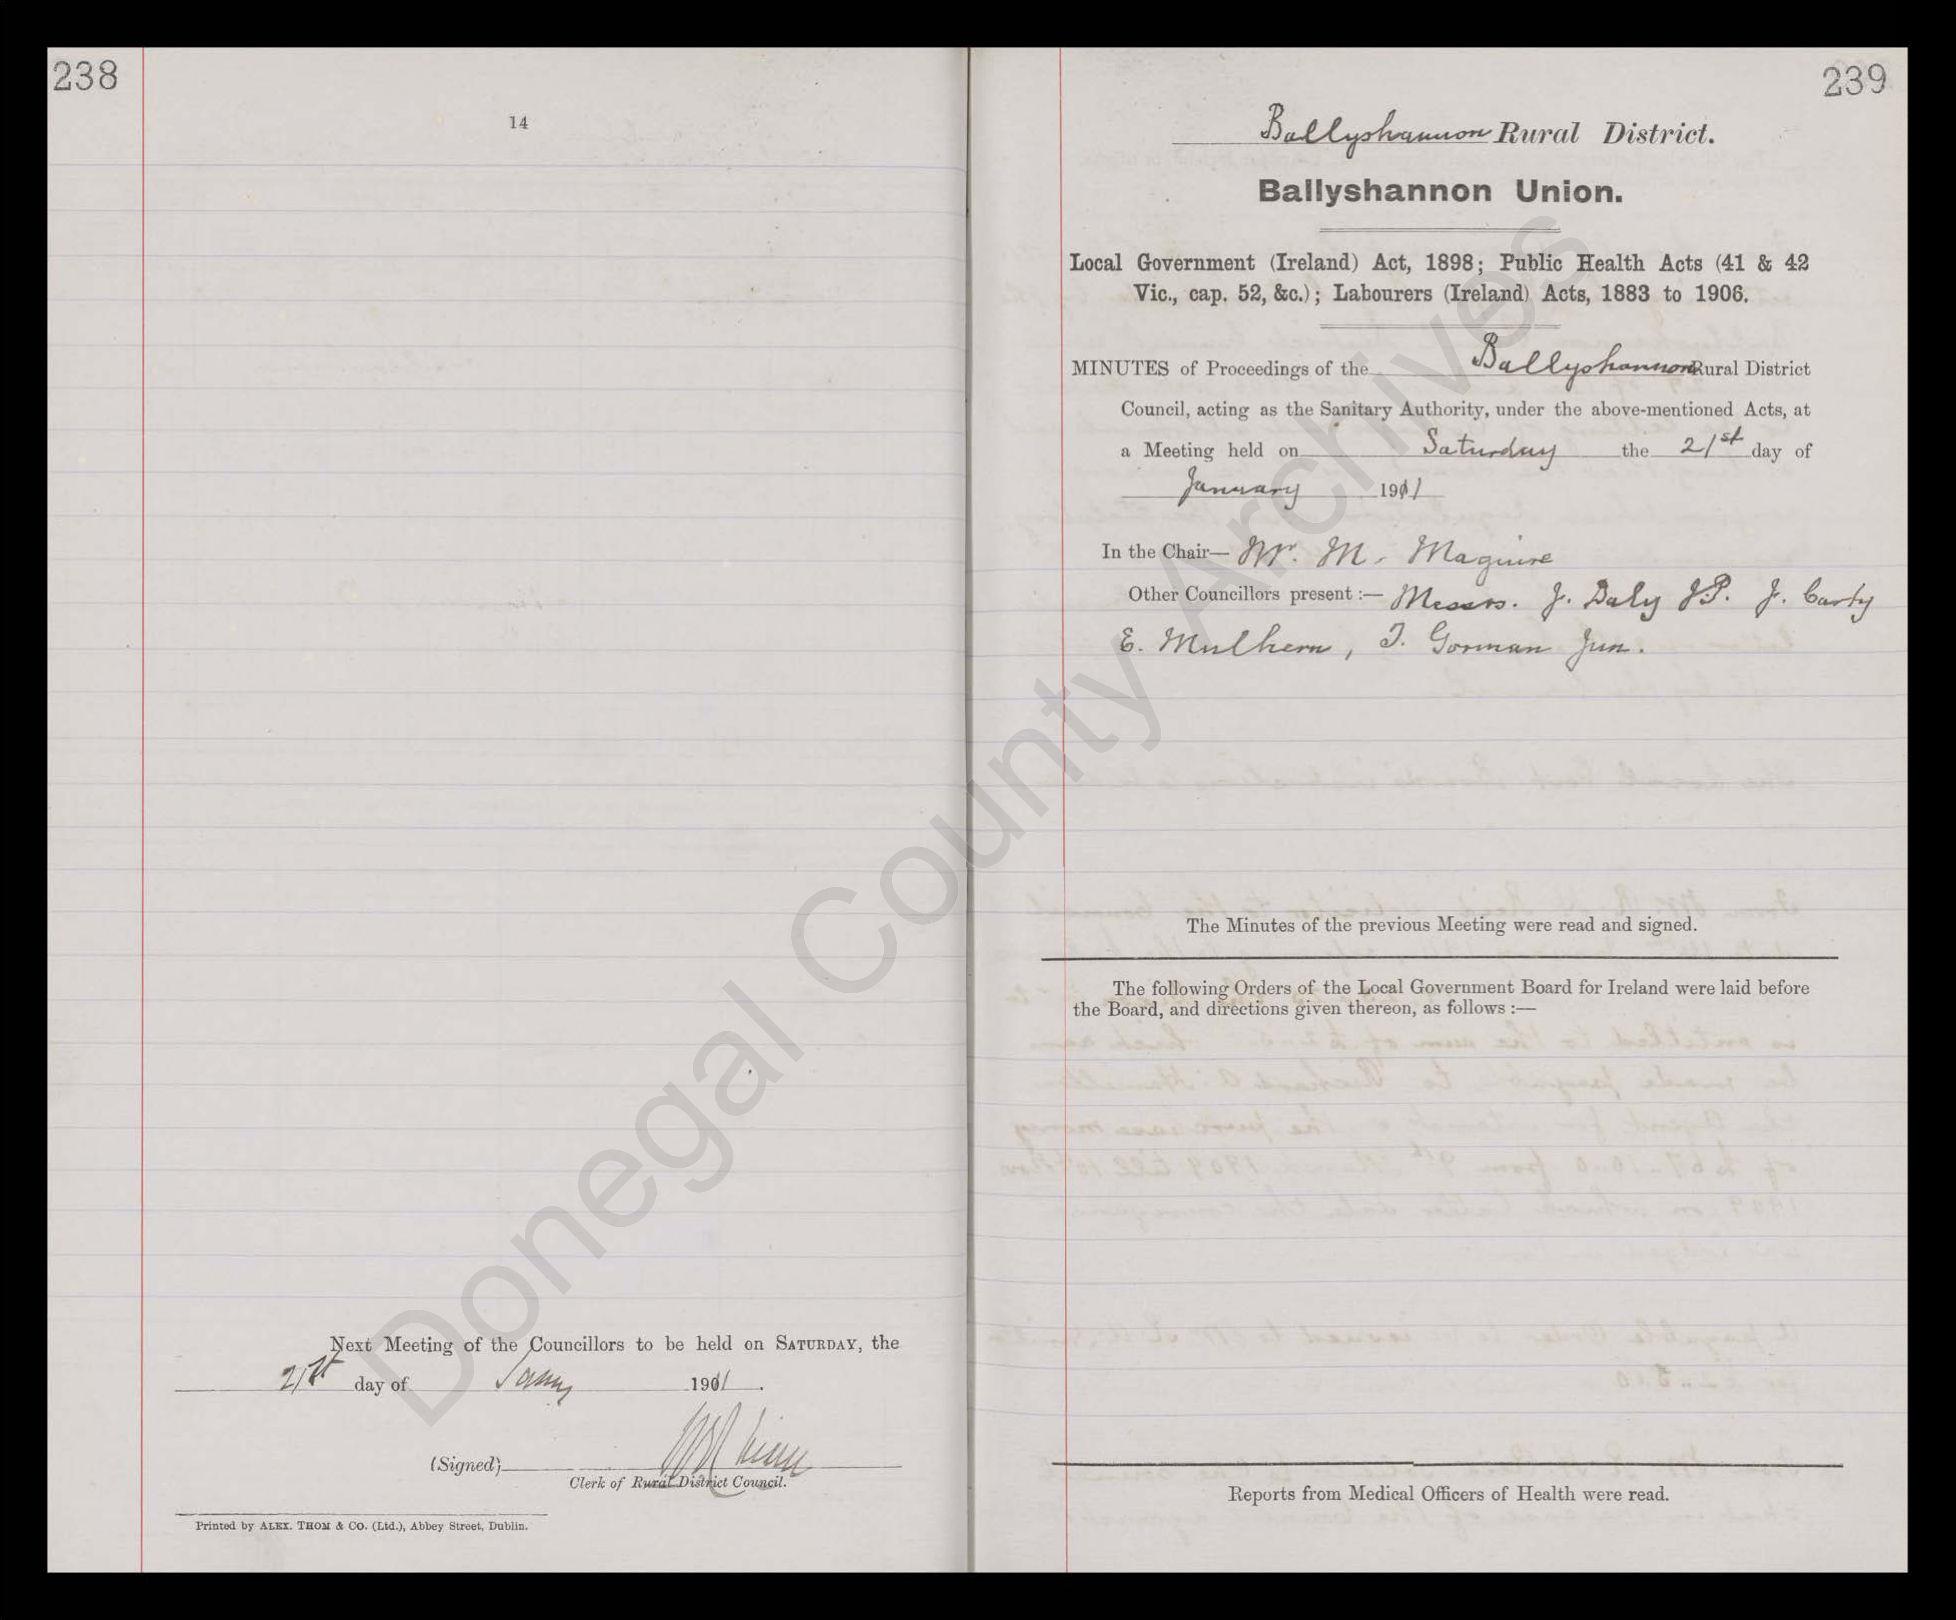 238
14
Next Meeting of the Councillors to be held on SATURDAY, the
21st day of Jany 1911.
(Signed)
Clerk of Rural District Council.
Printed by ALEX. THOM & CO. (Ltd.), Abbey Street, Dublin.
239
Ballyshannon Rural District.
Ballyshannon Union.
Local Government (Ireland) Act, 1898; Public Health Acts (41 & 42
Vic., cap. 52, &c.); Labourers (Ireland) Acts, 1883 to 1906.
MINUTES of Proceedings of the Ballyshannon Rural District
Council, acting as the Sanitary Authority, under the above-mentioned Acts, at
a Meeting held on Saturday the 21st day of
January 1911
In the Chair— Mr. M. Maguire
Other Councillors present :— Messrs. J. Daly JP. J. Carty
E. Mulhern, T. Gorman Jun.
The Minutes of the previous Meeting were read and signed.
The following Orders of the Local Government Board for Ireland were laid before
the Board, and directions given thereon, as follows :—
Reports from Medical Officers of Health were read.
Donegal County Archives